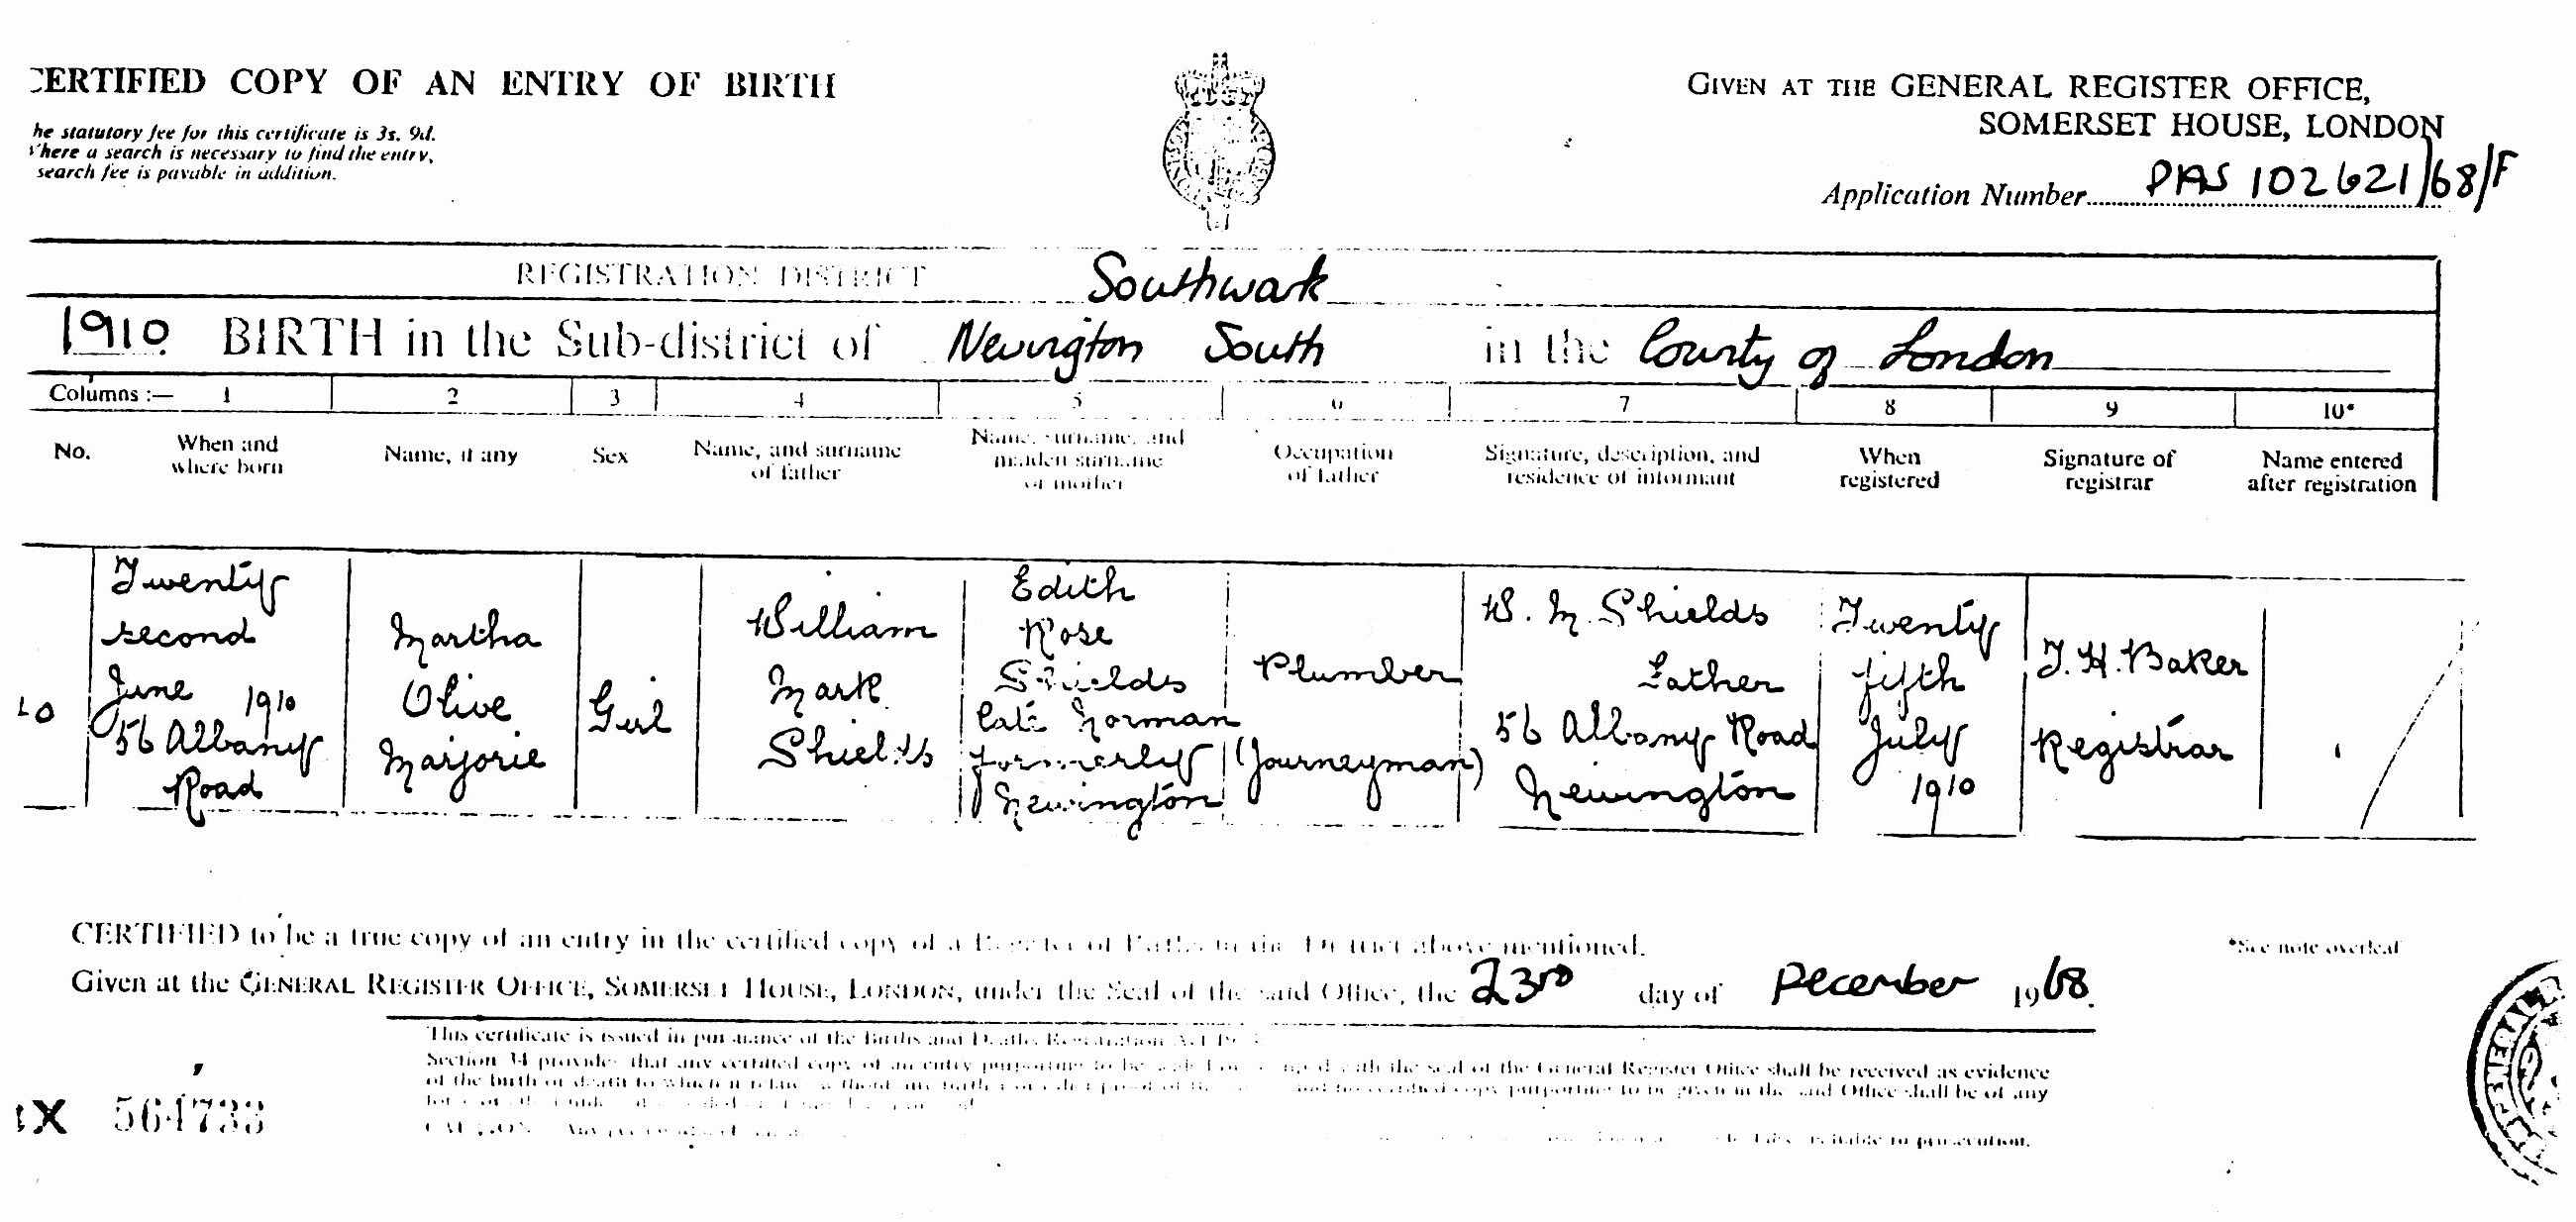 CERTIFIED COPY OF AN ENTRY OF BIRTH
GIVEN AT THE GENERAL REGISTER OFFICE,
SOMERSET HOUSE, LONDON
he statutory fee for this certificate is 3s. 9d.
here a search is necessary to find the entry,
search fee is payable in addition.
Application Number PAS 102621/68/F
REGISTRATION DISTRICT Southwark
1910 BIRTH in the Sub-district of Newington South in the County of London
Columns :— 1 2 3 4 5 6 7 8 9 10*
No. When and where born Name, if any Sex Name, and surname of father Name, surname, and maiden surname of mother Occupation of father Signature, description, and residence of informant When registered Signature of registrar Name entered after registration
Twenty second June 1910 56 Albany Road
Martha Olive Marjorie
Girl
William Mark Shields
Edith Rose Shields late Norman formerly Newington
Plumber (Journeyman)
W. M. Shields Father 56 Albany Road Newington
Twenty fifth July 1910
J. H. Baker Registrar
CERTIFIED to be a true copy of an entry in the certified copy of a Register of Births in the District above mentioned.
*See note overleaf
Given at the GENERAL REGISTER OFFICE, SOMERSET HOUSE, LONDON, under the Seal of the said Office, the 23rd day of December 1968.
This certificate is issued in pursuance of the Births and Deaths Registration Act
Section 34 provides that any certified copy of an entry purporting to be sealed or stamped with the seal of the General Register Office shall be received as evidence
of the birth or death to which it relates without any further or other proof of the and no certified copy purporting to be given in the said Office shall be of any
liable to prosecution.
X 564733
GENERAL